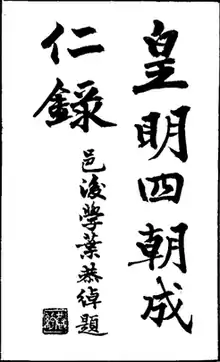 皇明四朝成
仁録
邑後學葉恭綽題